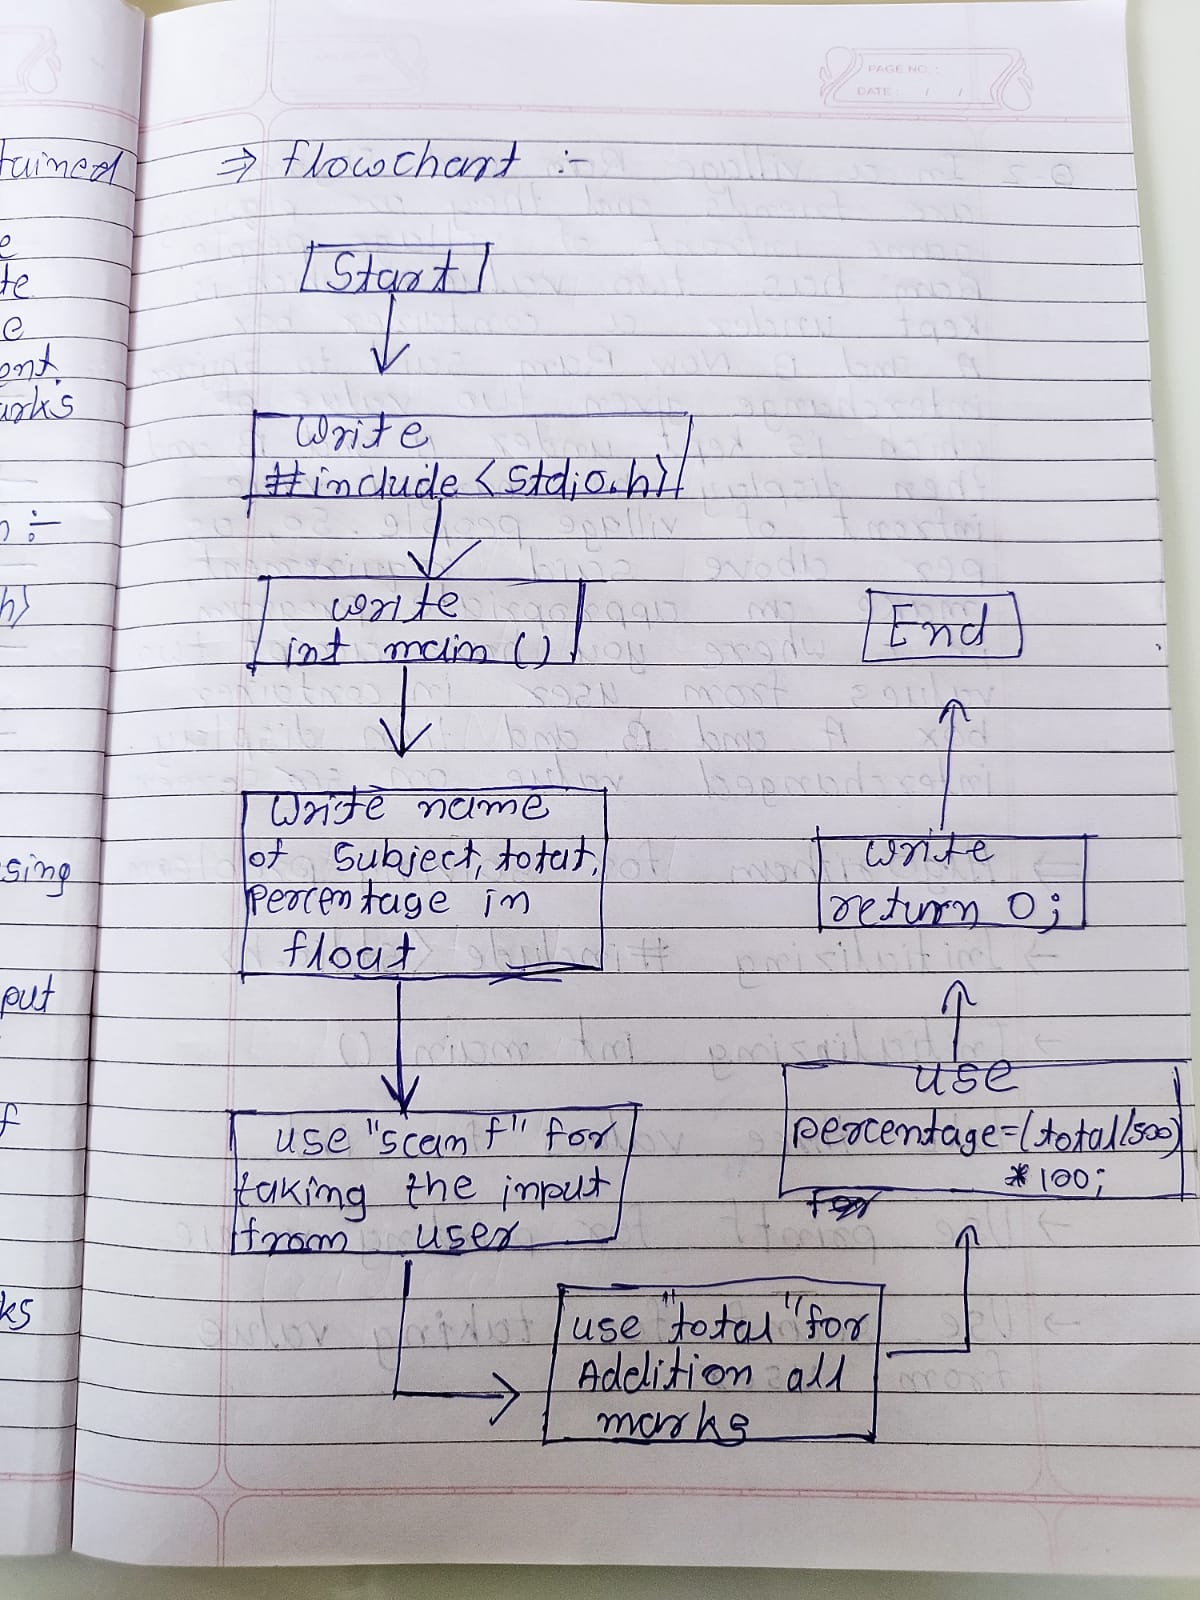 PAGE NO. :
DATE : / /
tained
e
te
e
ent.
arks
h)
sing
put
f
ks
⇒ flowchart :-
Start
Write
#include <stdio.h>
write
int main ()
Write name
of subject, total,
percentage in
float
use "scanf" for
taking the input
from user
use "total" for
Addition all
marks
use
percentage=(total/500)
*100;
write
return 0;
End